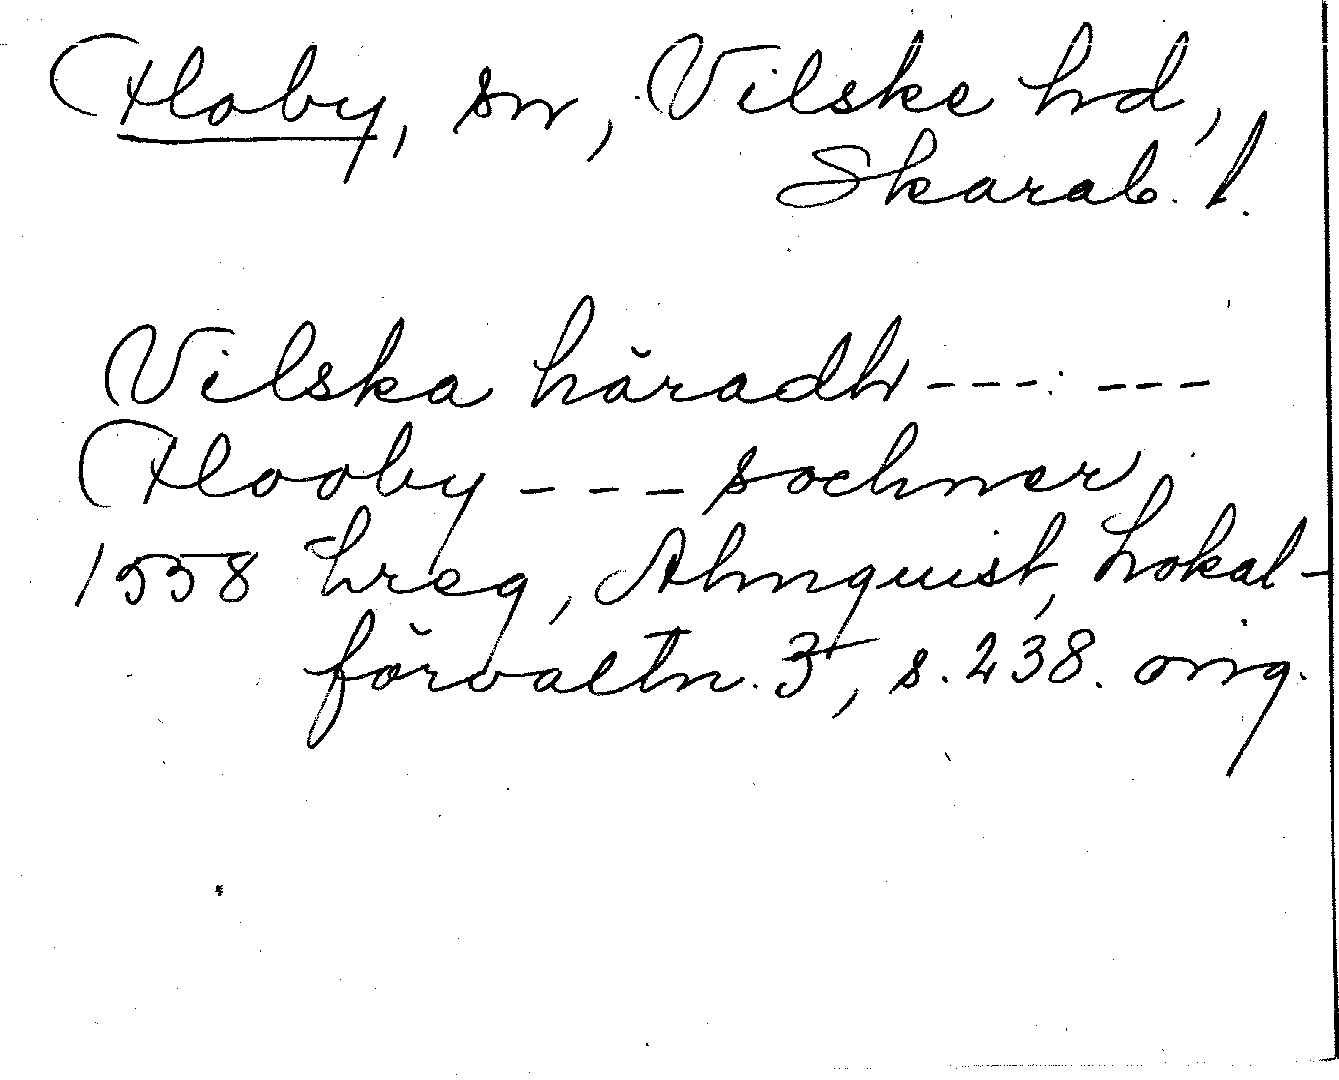 Floby, sn, Vilske hd,
Skarab. l.
Vilska häradh --- ---
Flooby --- sochner,
1558 hreg, Almquist, Lokal-
förvaltn. 3, s. 238. orig.